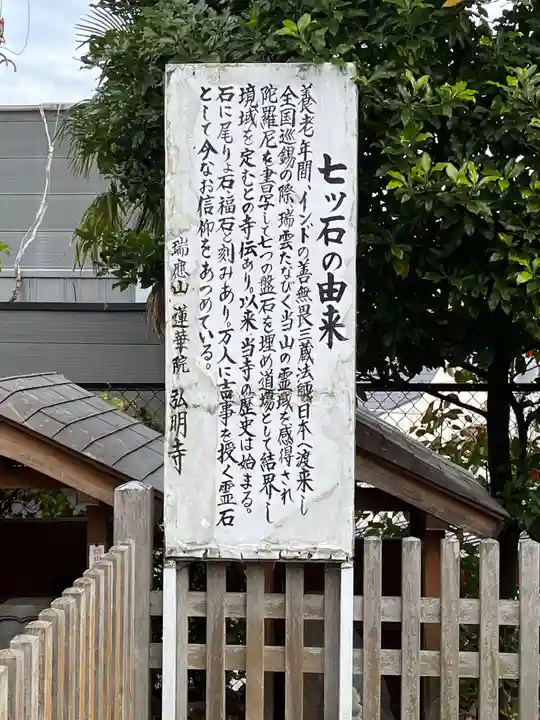 七ッ石の由来
養老年間、インドの善無畏三蔵法師日本へ渡来し
全国巡錫の際、瑞雲たなびく当山の霊域を感得され
陀羅尼を書写して七つの盤石を埋め道場として結界し
境域を定むとの寺伝あり。以来、当寺の歴史は始まる。
石に尾りょ石、福石と刻みあり。万人に吉事を授く霊石
として今なお信仰をあつめている。
瑞應山 蓮華院 弘明寺